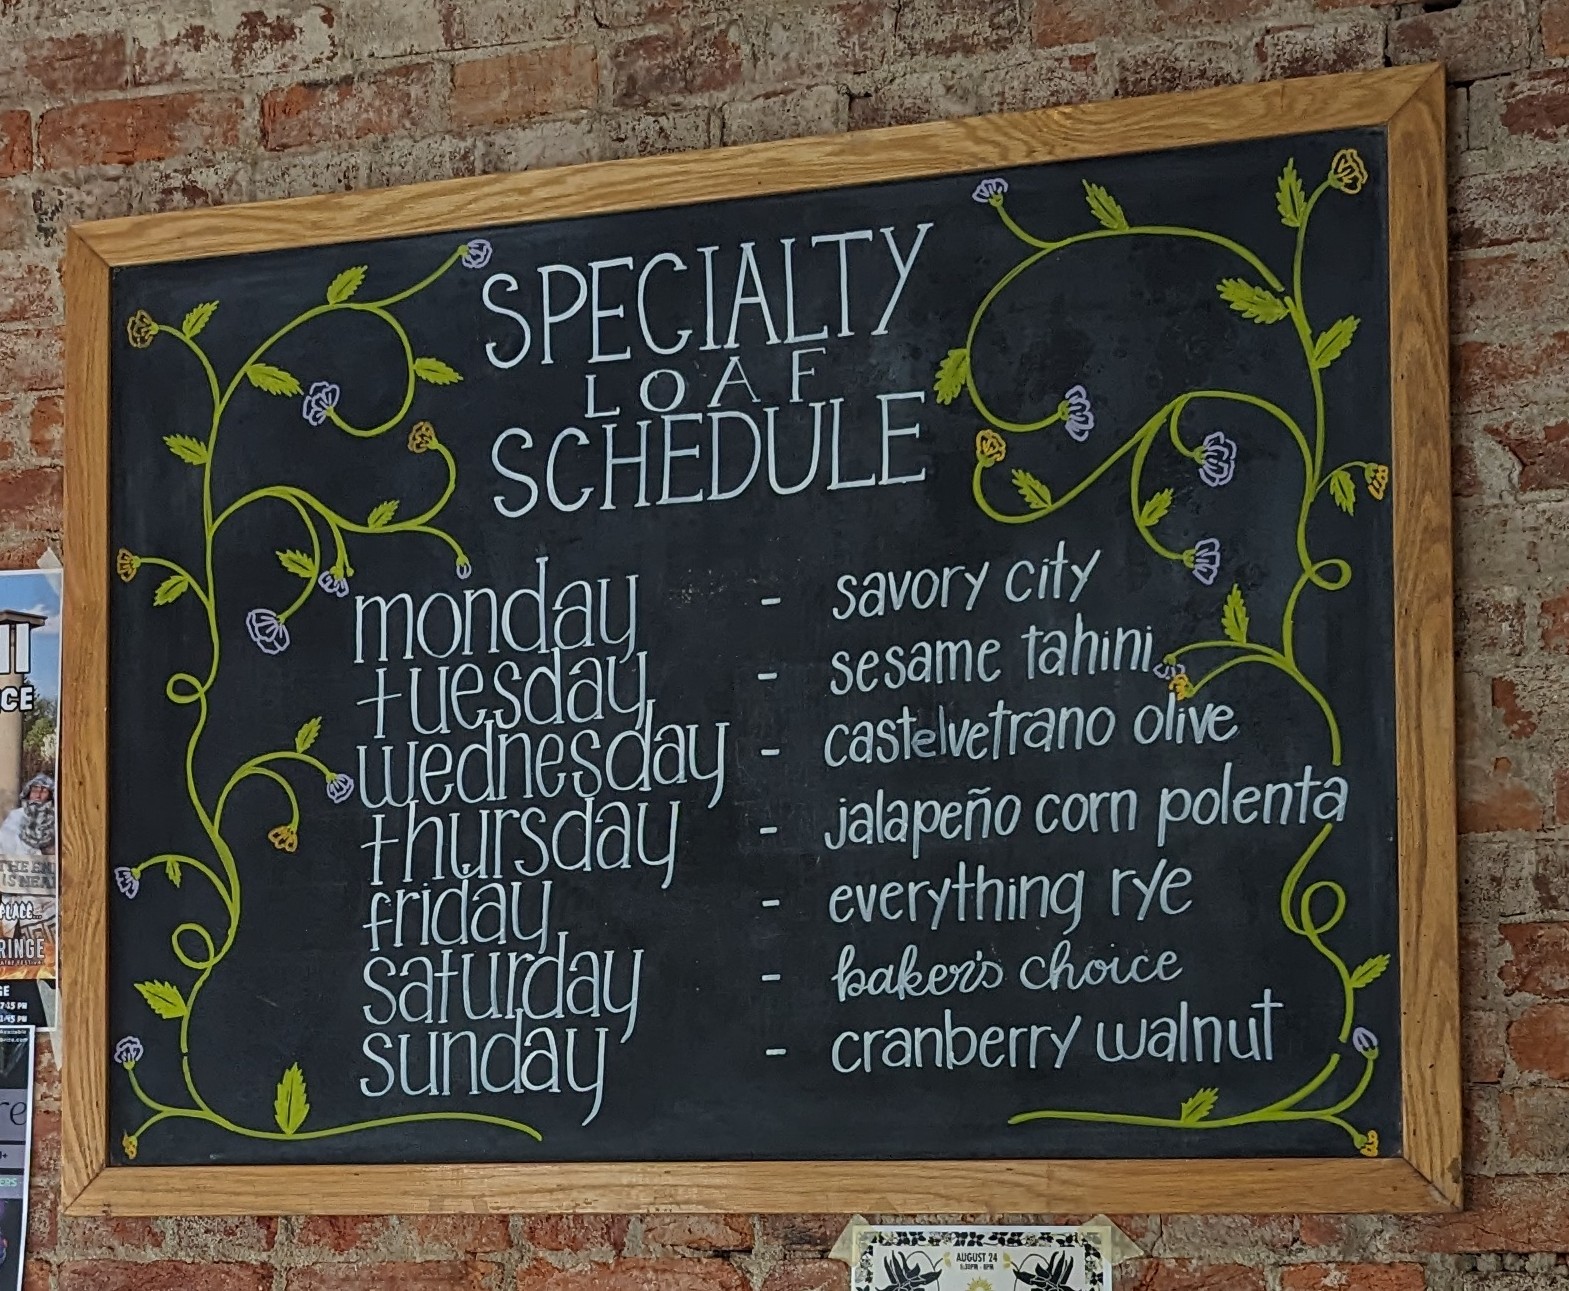 SPECIALTY
LOAF
SCHEDULE
monday - savory city
tuesday - sesame tahini
wednesday - castelvetrano olive
thursday - jalapeño corn polenta
friday - everything rye
saturday - baker's choice
sunday - cranberry walnut
CE
PLACE...
RINGE
GE
7:15 PM
1:45 PM
re
ERS
AUGUST 24